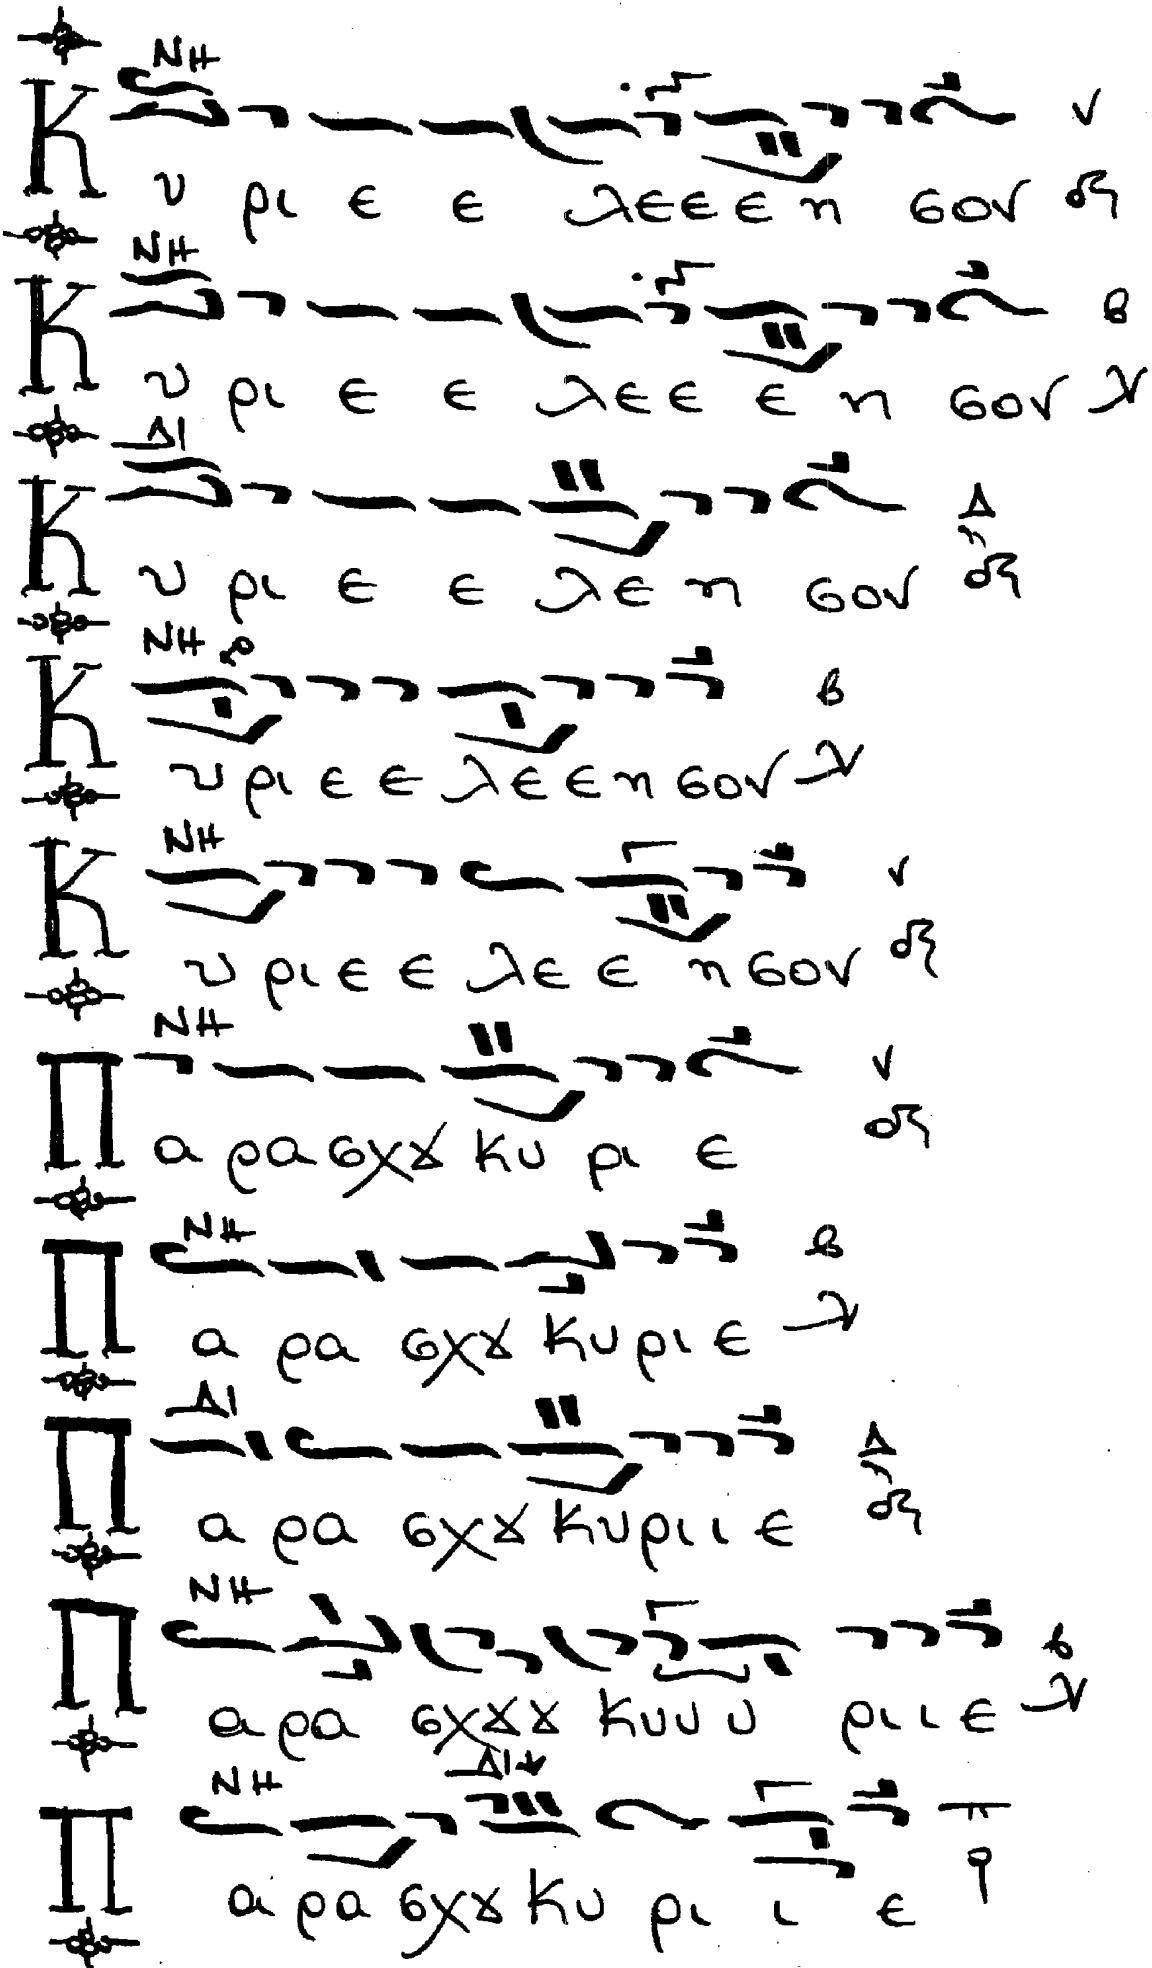 ΝΗ
Κυ ρι ε ε λεεε η σον
ΝΗ
Κυ ρι ε ε λεε ε η σον
ΔΙ
Κυ ρι ε ε λε η σον
ΝΗ
Κυ ρι ε ε λε ε η σον
ΝΗ
Κυ ρι ε ε λε ε η σον
ΝΗ
Πα ρα σχȣ Κυ ρι ε
ΝΗ
Πα ρα σχȣ Κυ ρι ε
ΔΙ
Πα ρα σχȣ Κυ ρι ι ε
ΝΗ
Πα ρα σχȣ ȣ Κυ υ υ ρι ι ε
ΝΗ ΔΙ
Πα ρα σχȣ Κυ ρι ι ε